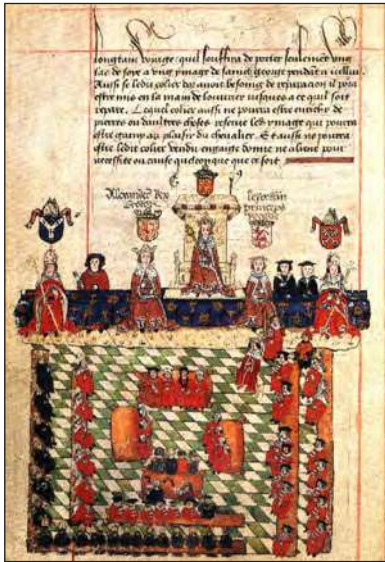 longtain voyage quil souffira de porter seulement ung
lac de soye a vng ymage de sainct george pendãt a icellui
Aussi se ledit colier auoit besoing de reparacion il pora
estre mis en la main de louurier iusques a ce quil soit
repare. Lequel colier aussi ne pourra estre enrichy de
pierres ou daultres choses reserue ymage qui pourra
estre garny au plaisir du cheualier. Et aussi ne pourra
estre ledit colier vendu engaige donne ne aliene pour
necessite ou cause quelconque que ce soit
Alexander Rex
princeps